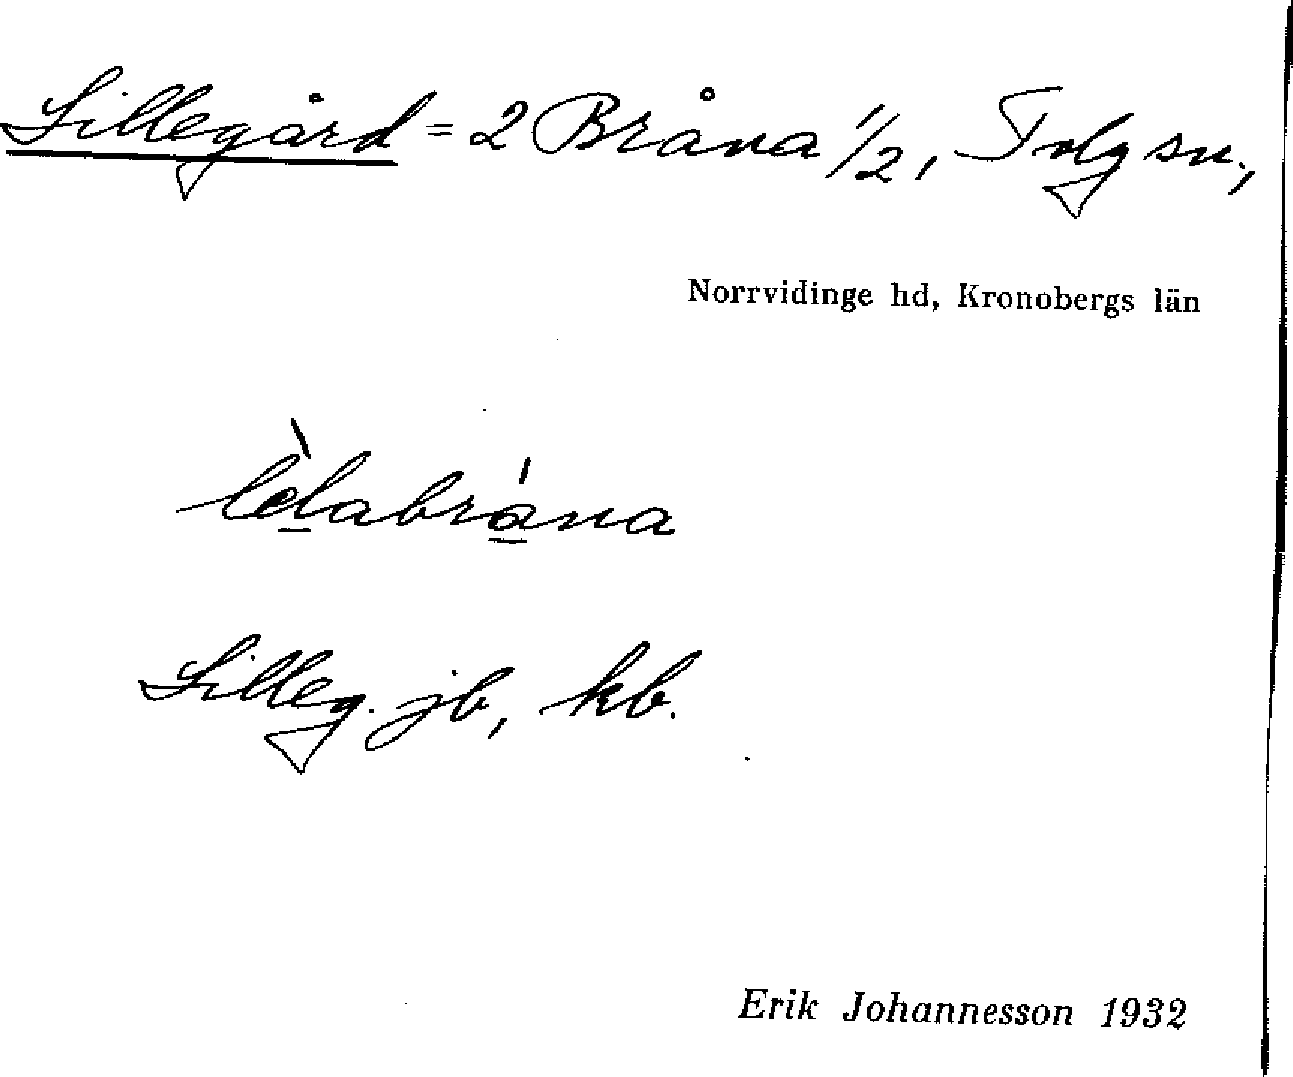 Lillegård = 2 Bråna 1/2, Tolg sn.,
Norrvidinge hd, Kronobergs län
lèlabrána
Lilleg. jb, kb.
Erik Johannesson 1932